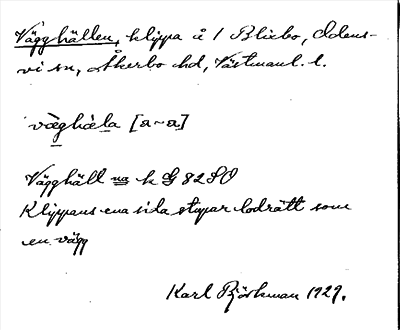 Vägghällen, klippa å 1 Blixbo, Odens-
vi sn, Åkerbo hd, Västmanl. l.
væghæla [a~a]
Vägghäll na k G 82 SO
Klippans ena sida stupar lodrätt som
en vägg
Karl Björkman 1929.